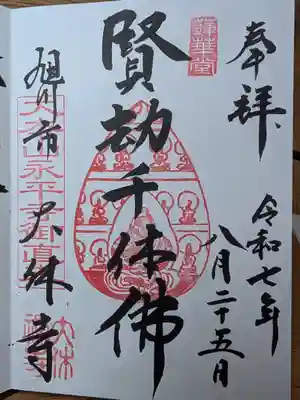 奉拝
令和七年
八月二十五月
蓮華堂
賢劫千体佛
旭川市大休寺